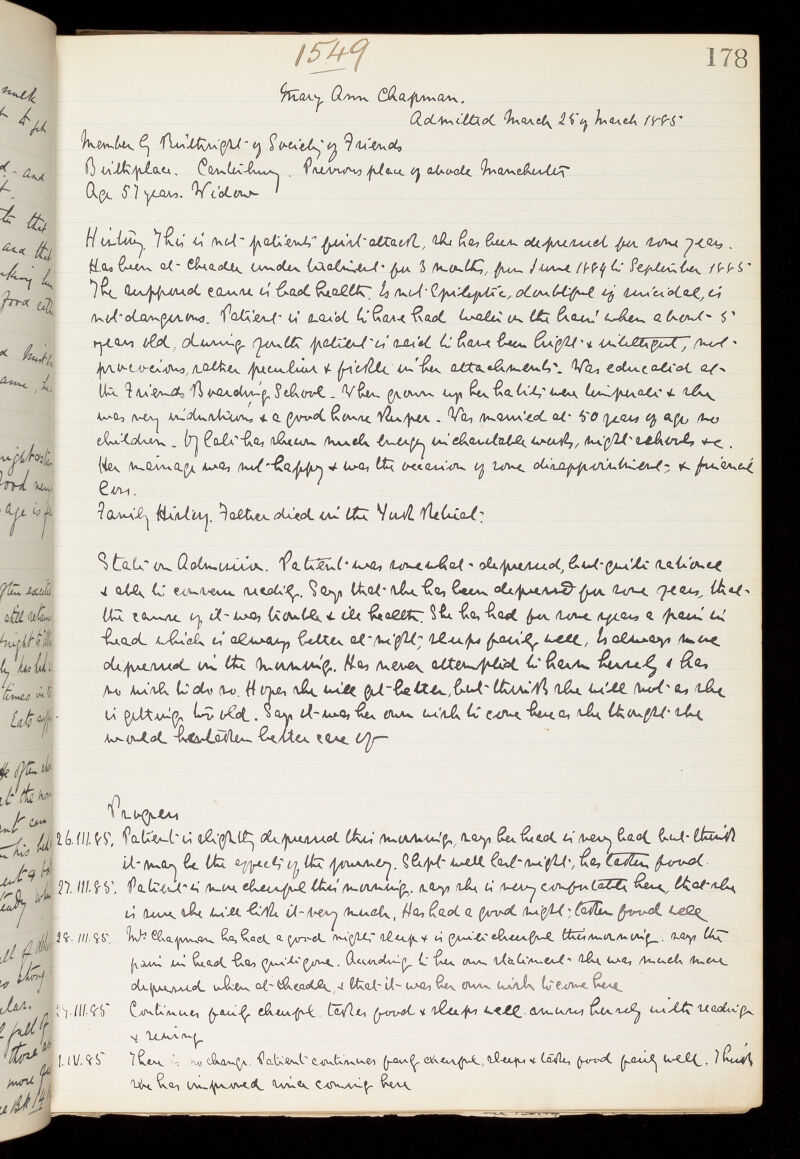 1549
178
Mary Ann Chapman.
Admitted March 25 of March 1885
Member by Birthright of Society of Friends
Birthplace. Canterbury. Previous place of abode Manchester
Age 57 years. Widow
History. This is not patients first attack, she has been depressed for some years.
Has been at Cheadle under treatment for 3 months, from June 1884 to September 1885
The supposed cause is bad health. Is not Epileptic, doubtful if suicidal, is
not dangerous. Patient is said to have had water on the brain when about 5
years old, during youth patient is said to have been bright & intelligent, not
precocious, rather peculiar & fickle in her attachments. Was educated at
the Friends Boarding School. When grown up her habits were temperate & she
was very industrious & a good house keeper. Was married at 50 years of age no
children. Of late has shewn much energy in charitable works, night schools &c.
Her marriage was not happy & was the occasion of some disappointment, & financial
loss.
Family History. Father died in the York Retreat.
State on Admission. Patient was somewhat depressed, but quite rational
& able to converse readily. Says that she has been depressed for some years, that
the cause of it was trouble & ill health. She has had for some years a pain in
head which is always better at night, sleeps fairly well, Is always more
depressed in the morning. Has never attempted to harm herself & has
no wish to do so. Hopes she will get better, but thinks she will not as she
is getting too old. Says it was her own wish to come here as she thought she
would be taken better care of
Progress
26.III.85. Patient is slightly depressed this morning, says her head is very bad but thinks
it may be the effects of the journey. Slept well last night, has taken food.
27.III.85. Patient is more cheerful this morning. says she is very comfortable here, that she
is sure she will like it very much. Has had a good night, taken food well
28.III.85. Mrs Chapman has had a good night's sleep & is quite cheerful this morning. says the
pain in head has quite gone. According to her own statement she was much more
depressed when at Cheadle, & that it was her own wish to come here
29.III.85 Continues fairly cheerful. takes food & sleeps well. amuses herself with reading
& sewing
1.IV.85 There is no change. Patient continues fairly cheerful, sleeps & takes food fairly well. Thinks
she has improved since coming here